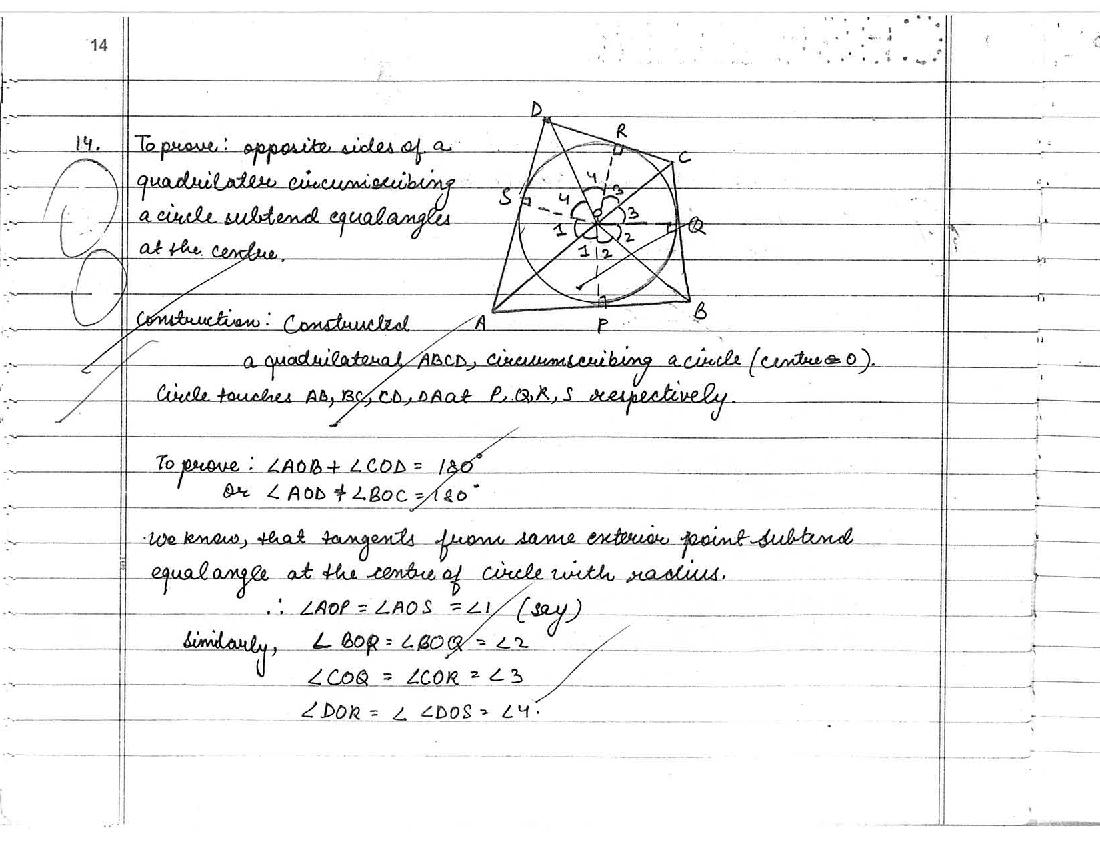 14
14. To prove: opposite sides of a
quadrilater circumscribing
a circle subtend equal angles
at the centre.
D
R
C
S
4
3
4
3
O
Q
1
2
1
2
A
P
B
Construction: Constructed
a quadrilateral ABCD, circumscribing a circle (centre = O).
Circle touches AB, BC, CD, DA at P, Q, R, S respectively.
To prove: ∠AOB + ∠COD = 180°
Or ∠AOD + ∠BOC = 180°
We know, that tangents from same exterior point subtend
equal angle at the centre of circle with radius.
∴ ∠AOP = ∠AOS = ∠1 (say)
Similarly, ∠BOP = ∠BOQ = ∠2
∠COQ = ∠COR = ∠3
∠DOR = ∠ ∠DOS = ∠4.